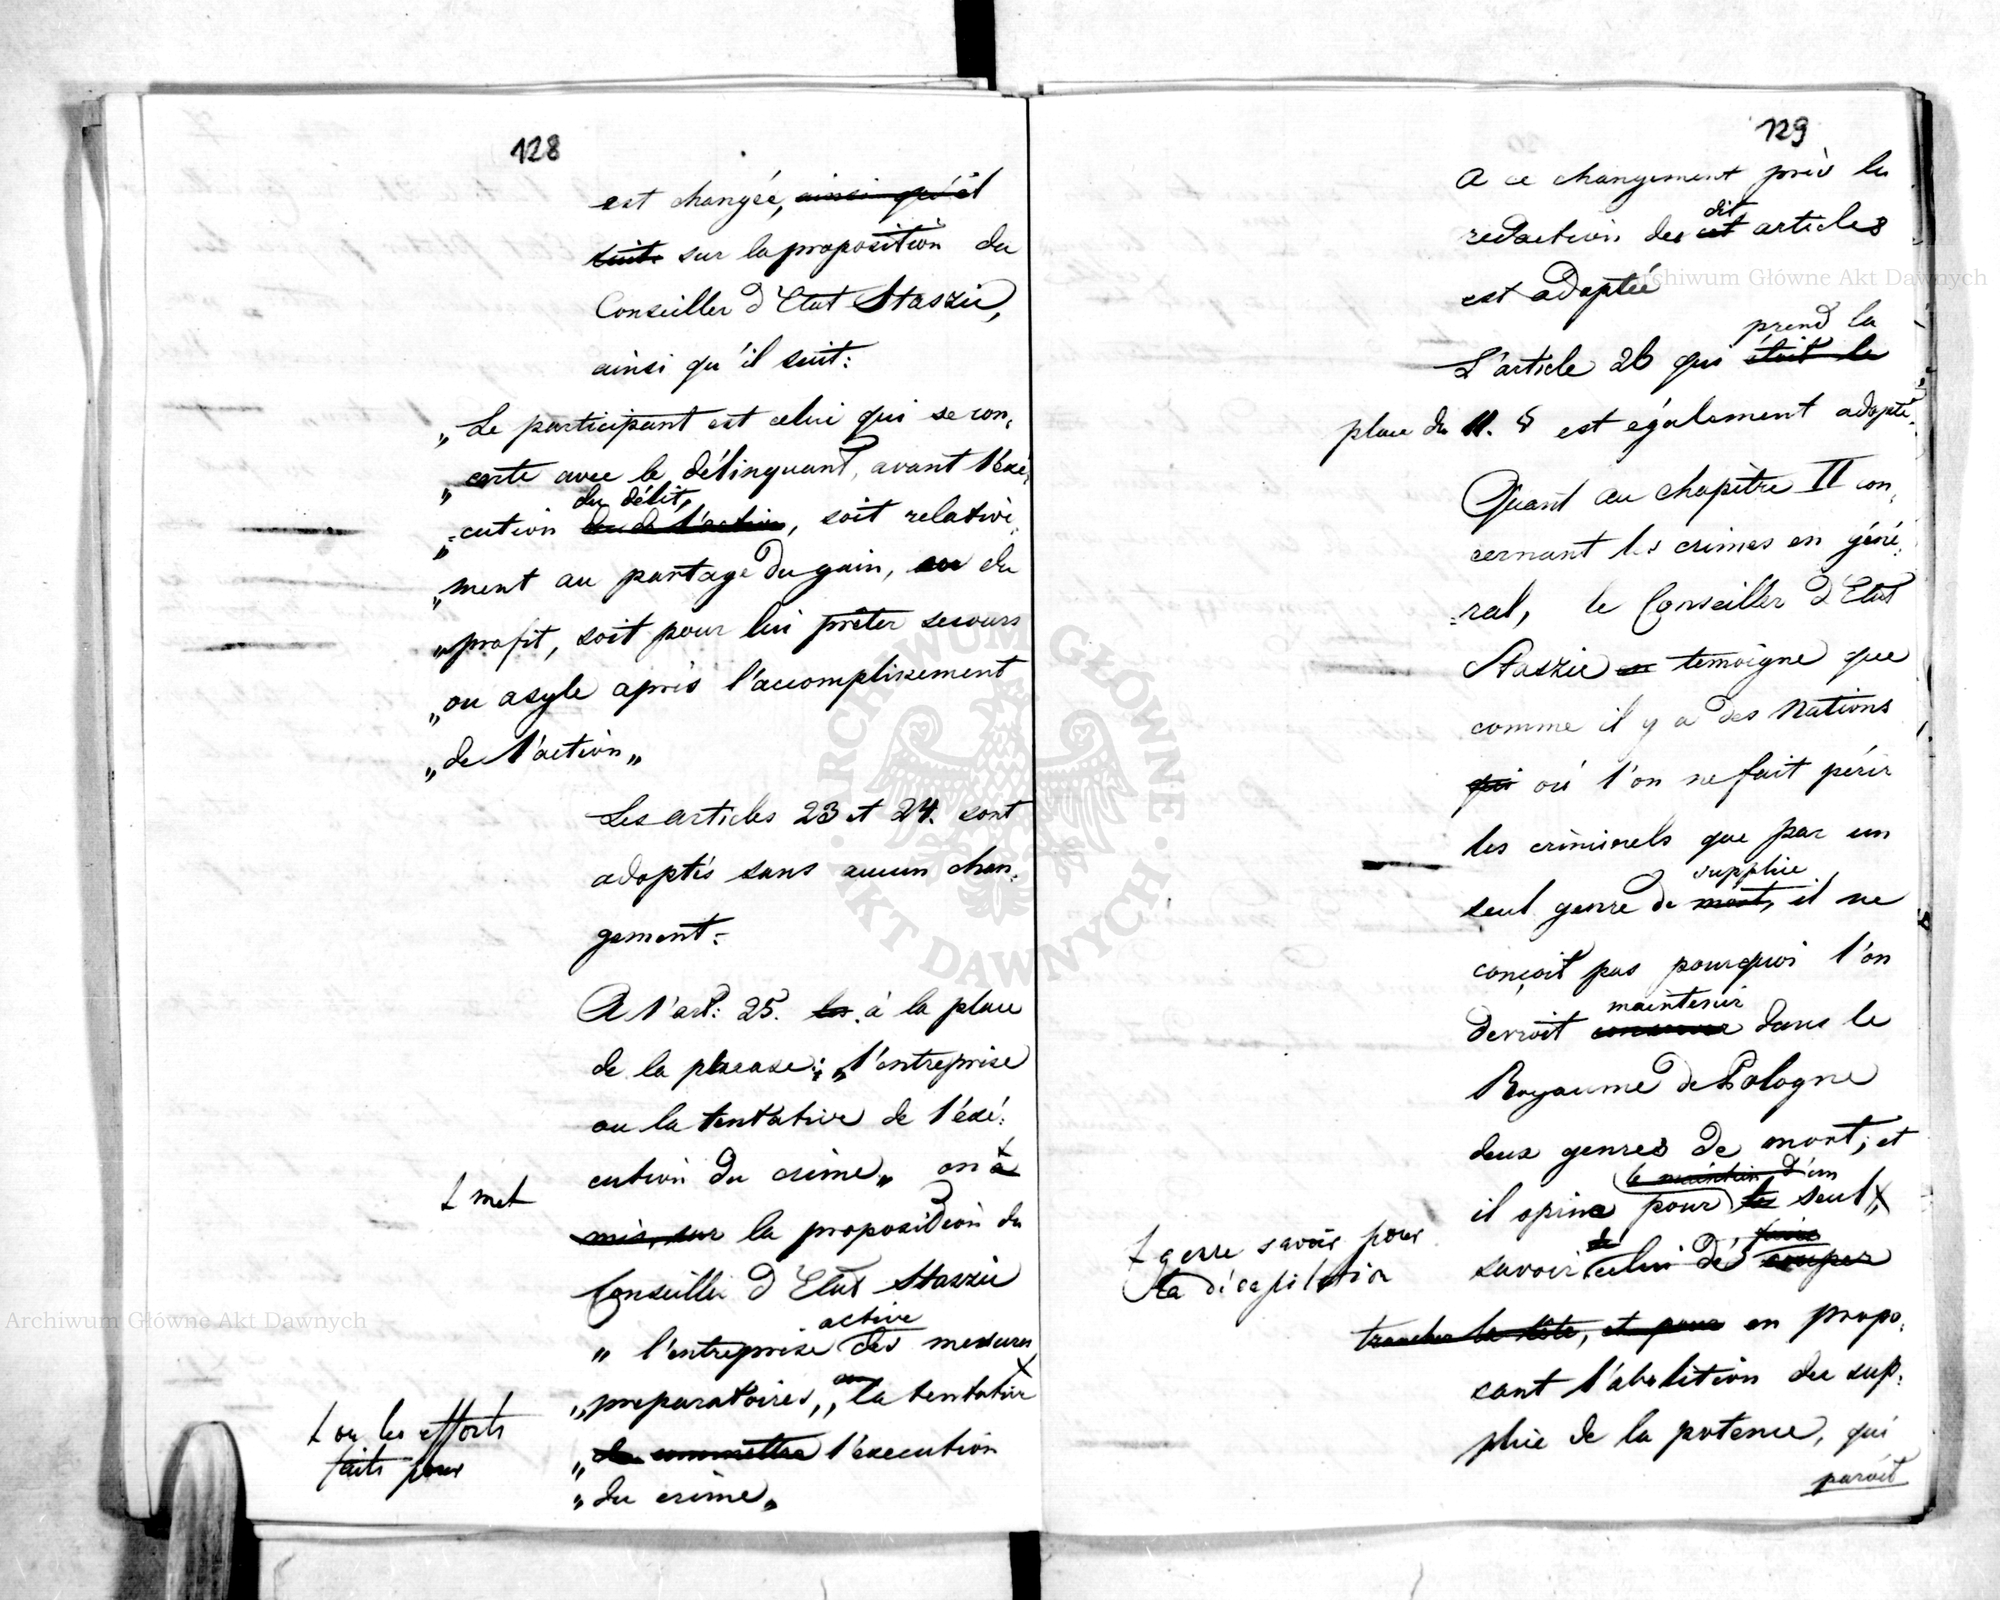 128
est changée, ainsi qu'il
suit. sur la proposition du
Conseiller d'Etat Staszic,
ainsi qu'il suit:
„Le participant est celui qui se con,
„certe avec le délinquant, avant l'exé,
du délit,
„cution de l'action, soit relative,
„ment au partage du gain, ou du
„profit, soit pour lui prêter secours
„ou asyle après l'accomplissement
„de l'action„
Les articles 23 et 24. sont
adoptés sans aucun chan,
gement.
A l'art: 25. les à la place
de la phrase: „l'entreprise
ou la tentative de l'exé,
cution du crime„ on a
ɫ met
mis, sur la proposition du
Conseiller d'Etat Staszic
active
„ l'entreprise des mesures
ou
„preparatoires, la tentative
ɫ ou les efforts
faits pour
„de commettre l'execution
„du crime„
129
A ce changement près la
dit
redaction des cet articles
est adoptée
prend la
L'article 26 qui étoit la
place du 11. § est également adopté.
Quant au chapître II con,
cernant les crimes en géné,
ral, le Conseiller d'Etat
Staszic en temoigne que
comme il y a des Nations
qui où l'on ne fait périr
les criminels que par un
supplice
seul genre de mort, il ne
conçoit pas pourquoi l'on
maintenir
devroit conserver dans le
Royaume de Pologne
deux genres de mort, et
le maintien d'un
il opine pour le seul,
ɫ genre savoir pour
la décapitation
de faire
savoir celui de couper
trancher la tête, et pour en propo,
sant l'abolition du sup,
plice de la potence, qui
paroît
Archiwum Główne Akt Dawnych
Archiwum Główne Akt Dawnych
ARCHIWUM GŁÓWNE · AKT DAWNYCH ·